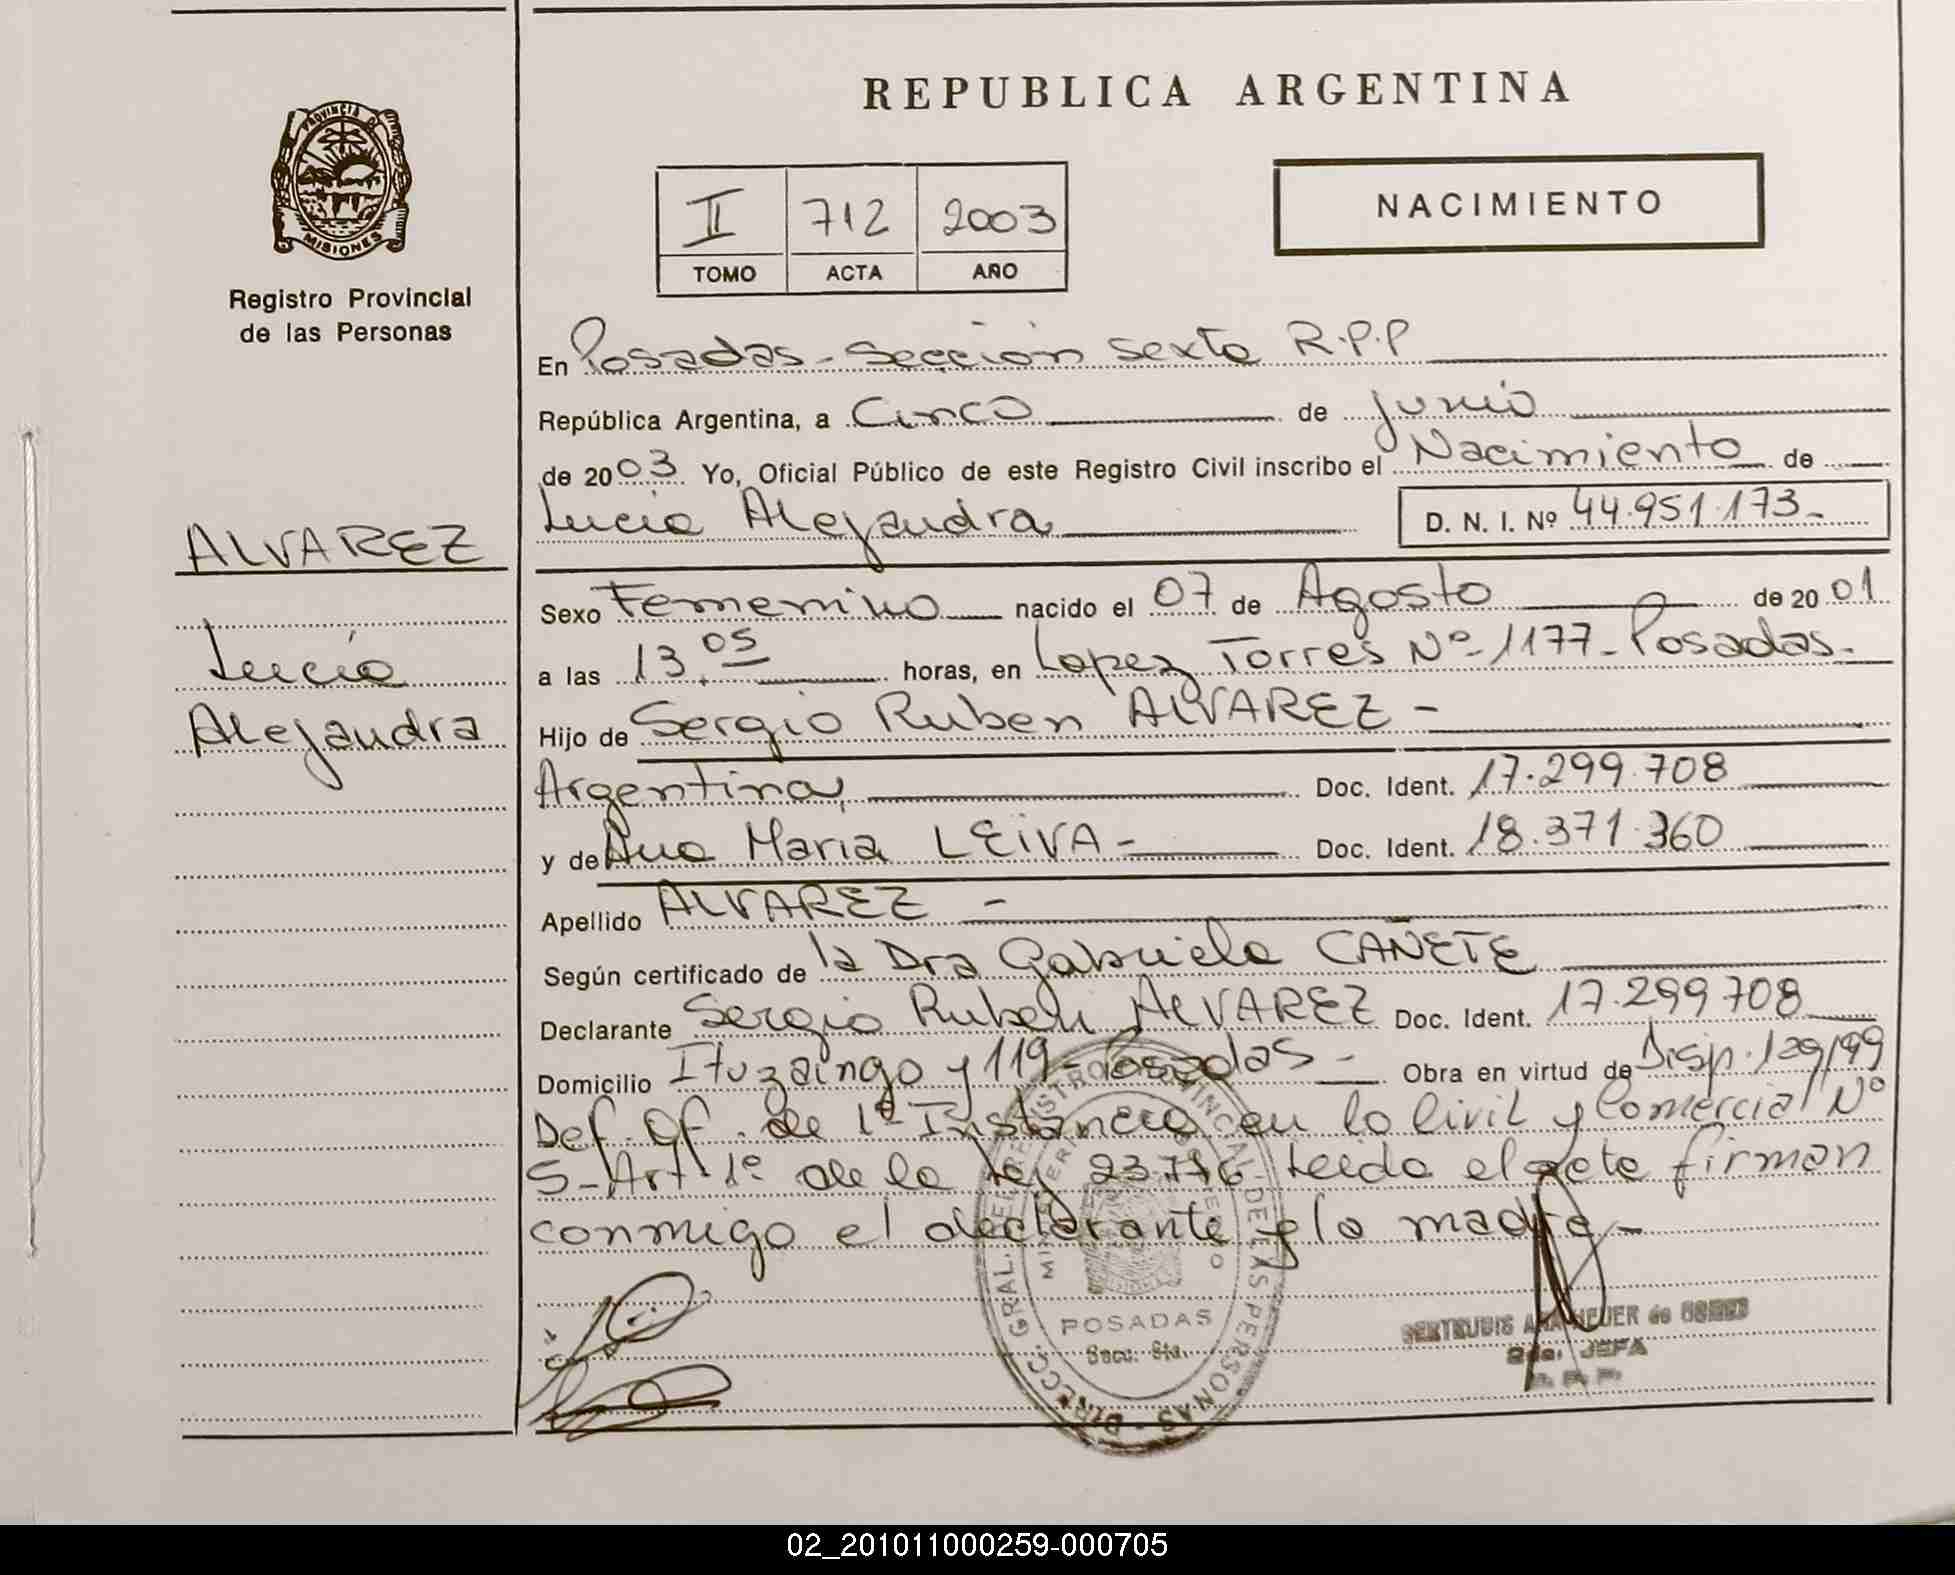 REPUBLICA ARGENTINA
PROVINCIA DE
MISIONES
Registro Provincial
de las Personas
II 712 2003
TOMO ACTA AÑO
NACIMIENTO
En Posadas - Seccion Sexta R.P.P
República Argentina, a Cinco de junio
de 2003 Yo, Oficial Público de este Registro Civil inscribo el Nacimiento de
Lucía Alejandra D. N. I. Nº 44.951.173-
ALVAREZ
Lucía
Alejandra
Sexo Femenino nacido el 07 de Agosto de 2001
a las 13,05 horas, en Lopez Torres Nº 1177 - Posadas.
Hijo de Sergio Ruben ALVAREZ -
Argentina, Doc. Ident. 17.299.708
y de Ana María LEIVA - Doc. Ident. 18.371.360
Apellido ALVAREZ -
Según certificado de la Dra Gabriela CAÑETE
Declarante Sergio Ruben ALVAREZ Doc. Ident. 17.299708
Domicilio Ituzaingo y 119 - Posadas - Obra en virtud de Disp. 129/99
Def. Of. de 1ª Instancia en lo Civil y Comercial Nº
5 - Art. 1º de la ley 23.776 Leida el acta firman
conmigo el declarante y la madre -
DIRECC. GRAL. DEL REGISTRO PROVINCIAL DE LAS PERSONAS
POSADAS
Secc. 6ta.
2da. JEFA
R. P. P.
02_201011000259-000705